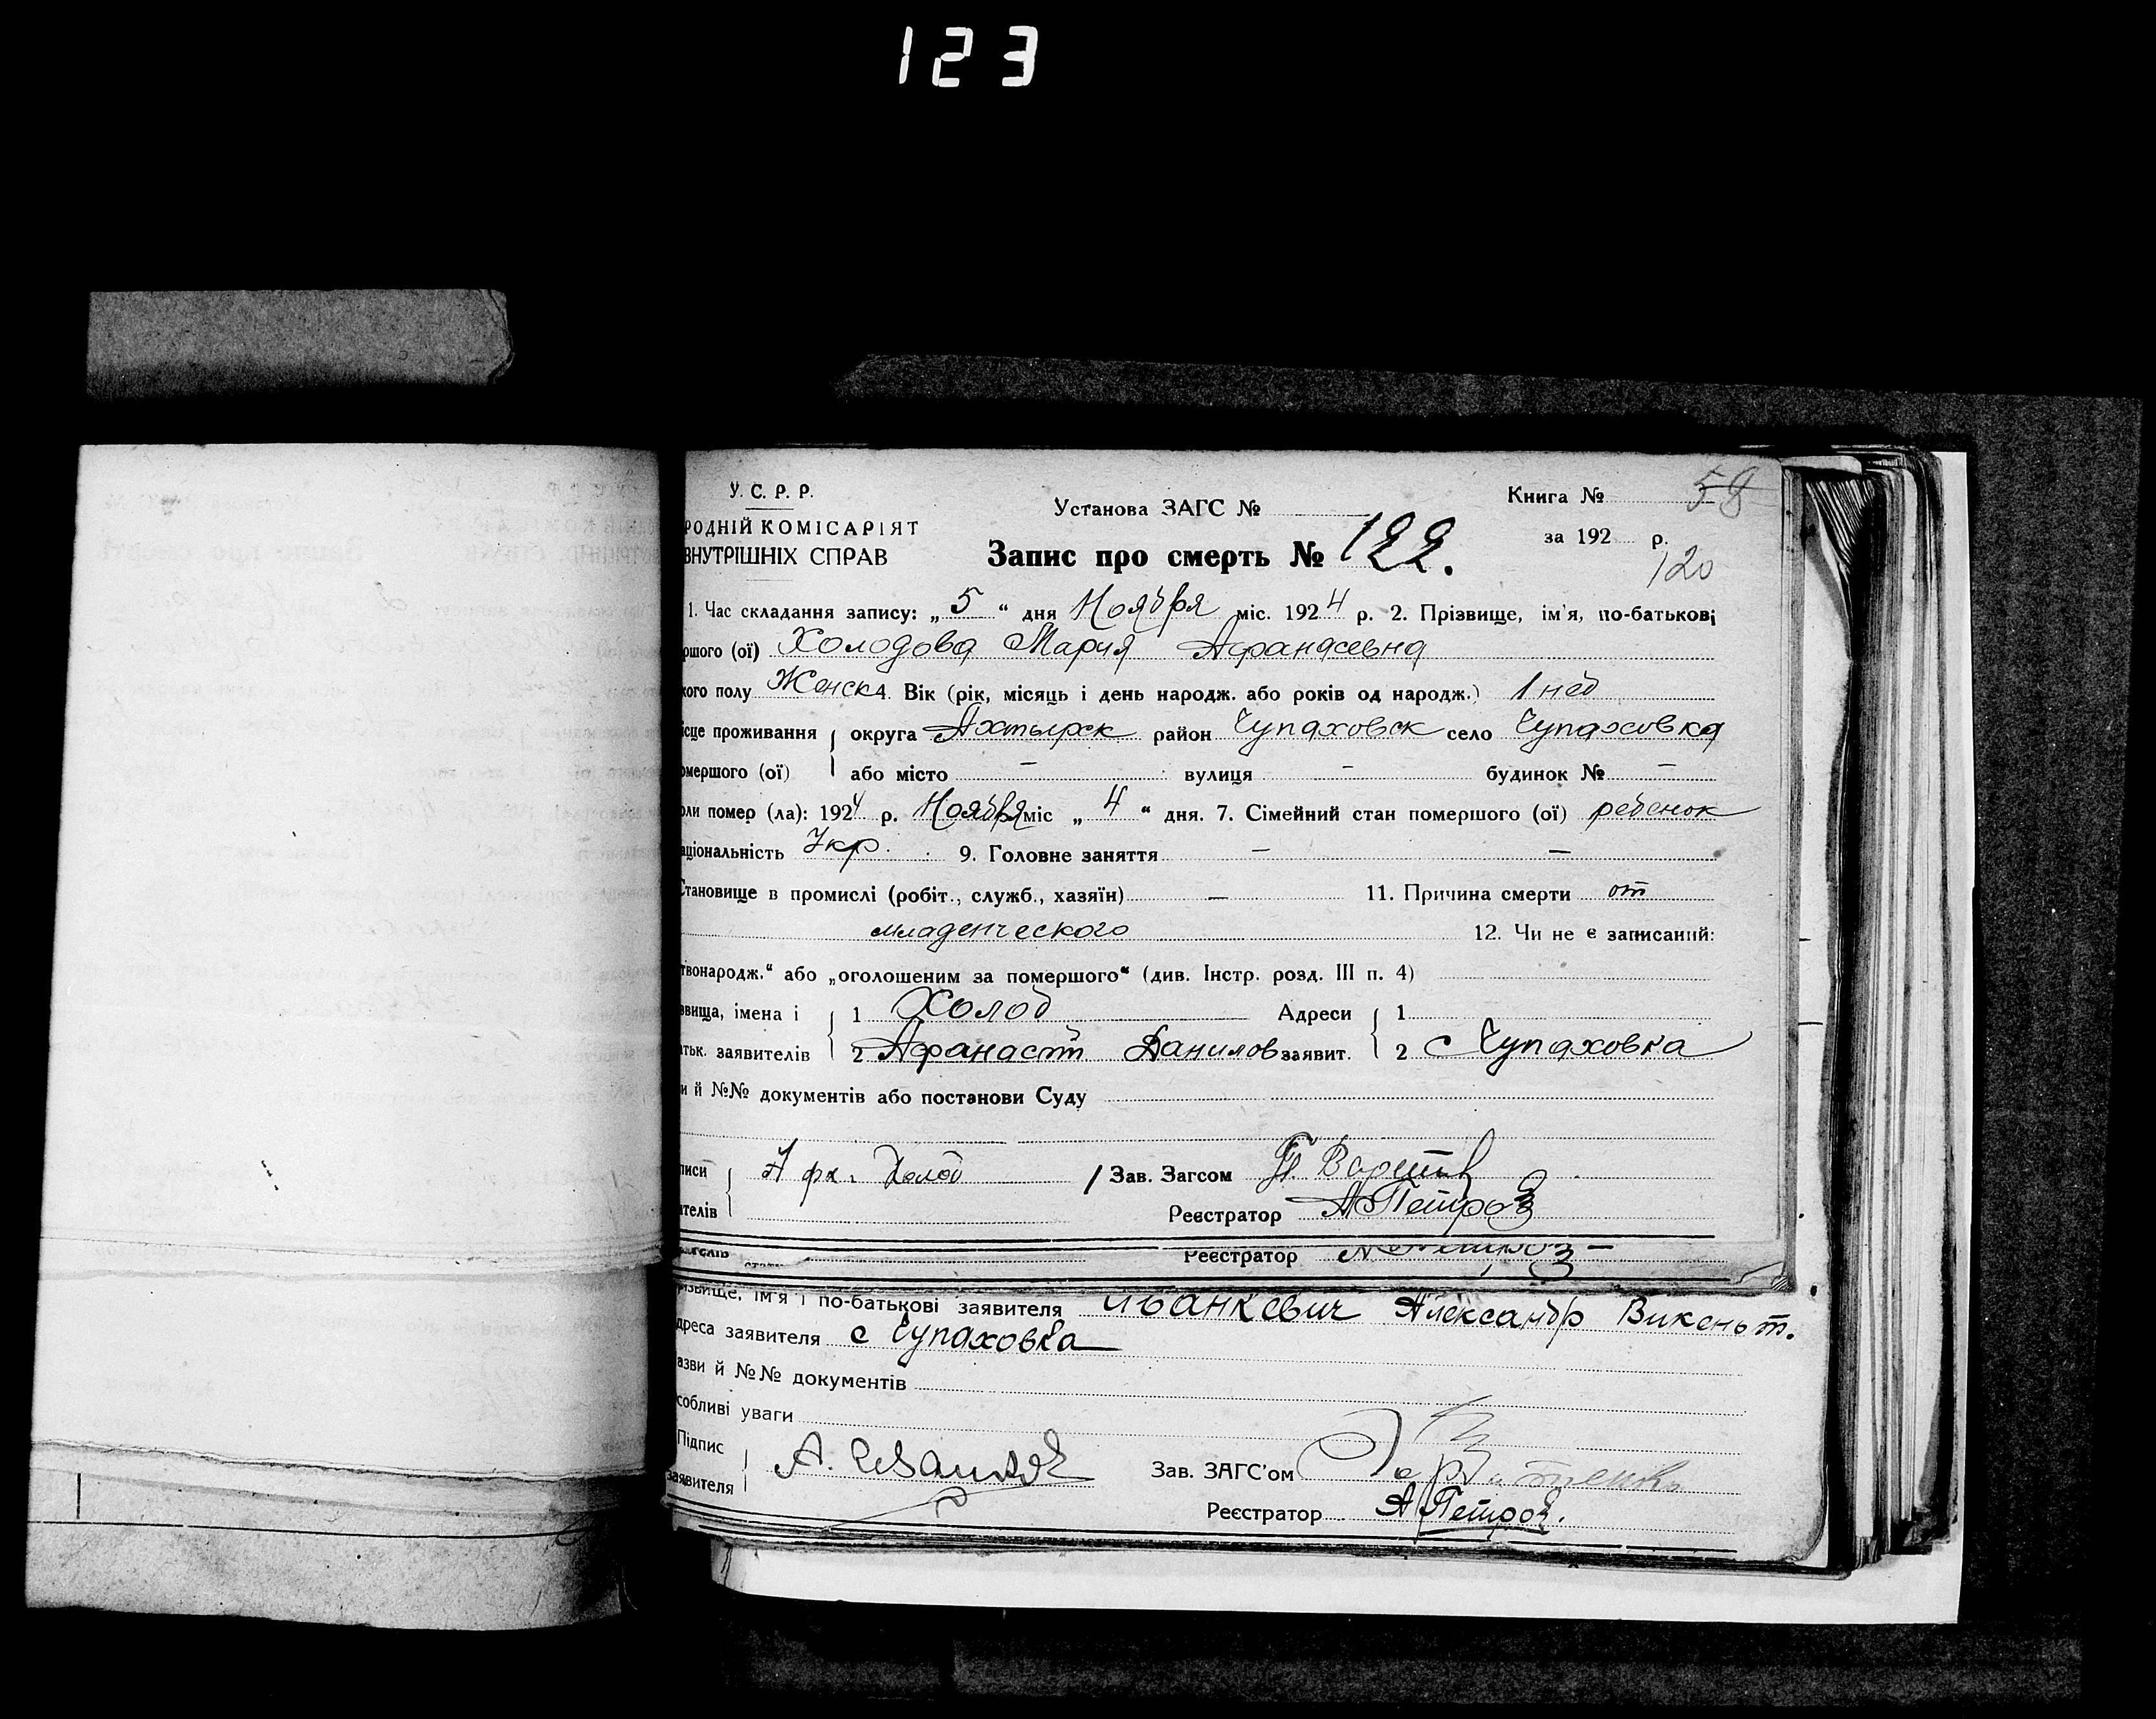 123
У. С. Р. Р.
Установа ЗАГС №
Книга №
58
РОДНІЙ КОМІСАРІЯТ
ВНУТРІШНІХ СПРАВ
Запис про смерть № 122.
за 192 р.
120
1. Час складання запису: „5“ дня Ноября міс. 1924 р. 2. Прізвище, ім'я, по-батькові
ршого (ої) Холодова Мария Афанасевна
кого полу Женск 4. Вік (рік, місяць і день народж. або років од народж.) 1 нед
ісце проживання округа Ахтырск район Чупаховск село Чупаховка
омершого (ої) або місто – вулиця – будинок № –
оли помер (ла): 1924 р. Ноября міс „4“ дня. 7. Сімейний стан помершого (ої) ребенок
аціональність Укр. 9. Головне заняття – –
Становище в промислі (робіт., служб., хазяїн) – 11. Причина смерти от
младенческого 12. Чи не є записаний:
твонародж.“ або „оголошеним за помершого“ (див. Інстр. розд. III п. 4)
звища, імена і 1 Холод Адреси 1
атьк. заявителів 2 Афанасий Данилов заявит. 2 с Чупаховка
и й №№ документів або постанови Суду
писи Афк. Холод / Зав. Загсом
ителів Реєстратор А Петров
Реєстратор А Петров
різвище, ім'я і по-батькові заявителя Иванкевич Александр Викеньт.
дреса заявителя с Чупаховка
азви й №№ документів
собливі уваги
Підпис
заявителя
Зав. ЗАГС'ом
Реєстратор А Петров.